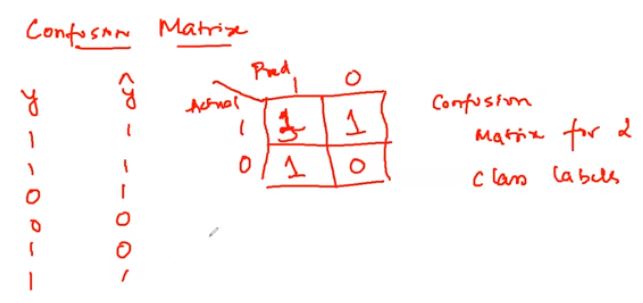 Confusion Matrix
y ŷ
1 1
1 1
0 1
0 0
1 0
1 1
Pred
1 0
Actual
1 1
0 1 0
Confusion
Matrix for 2
Class labels